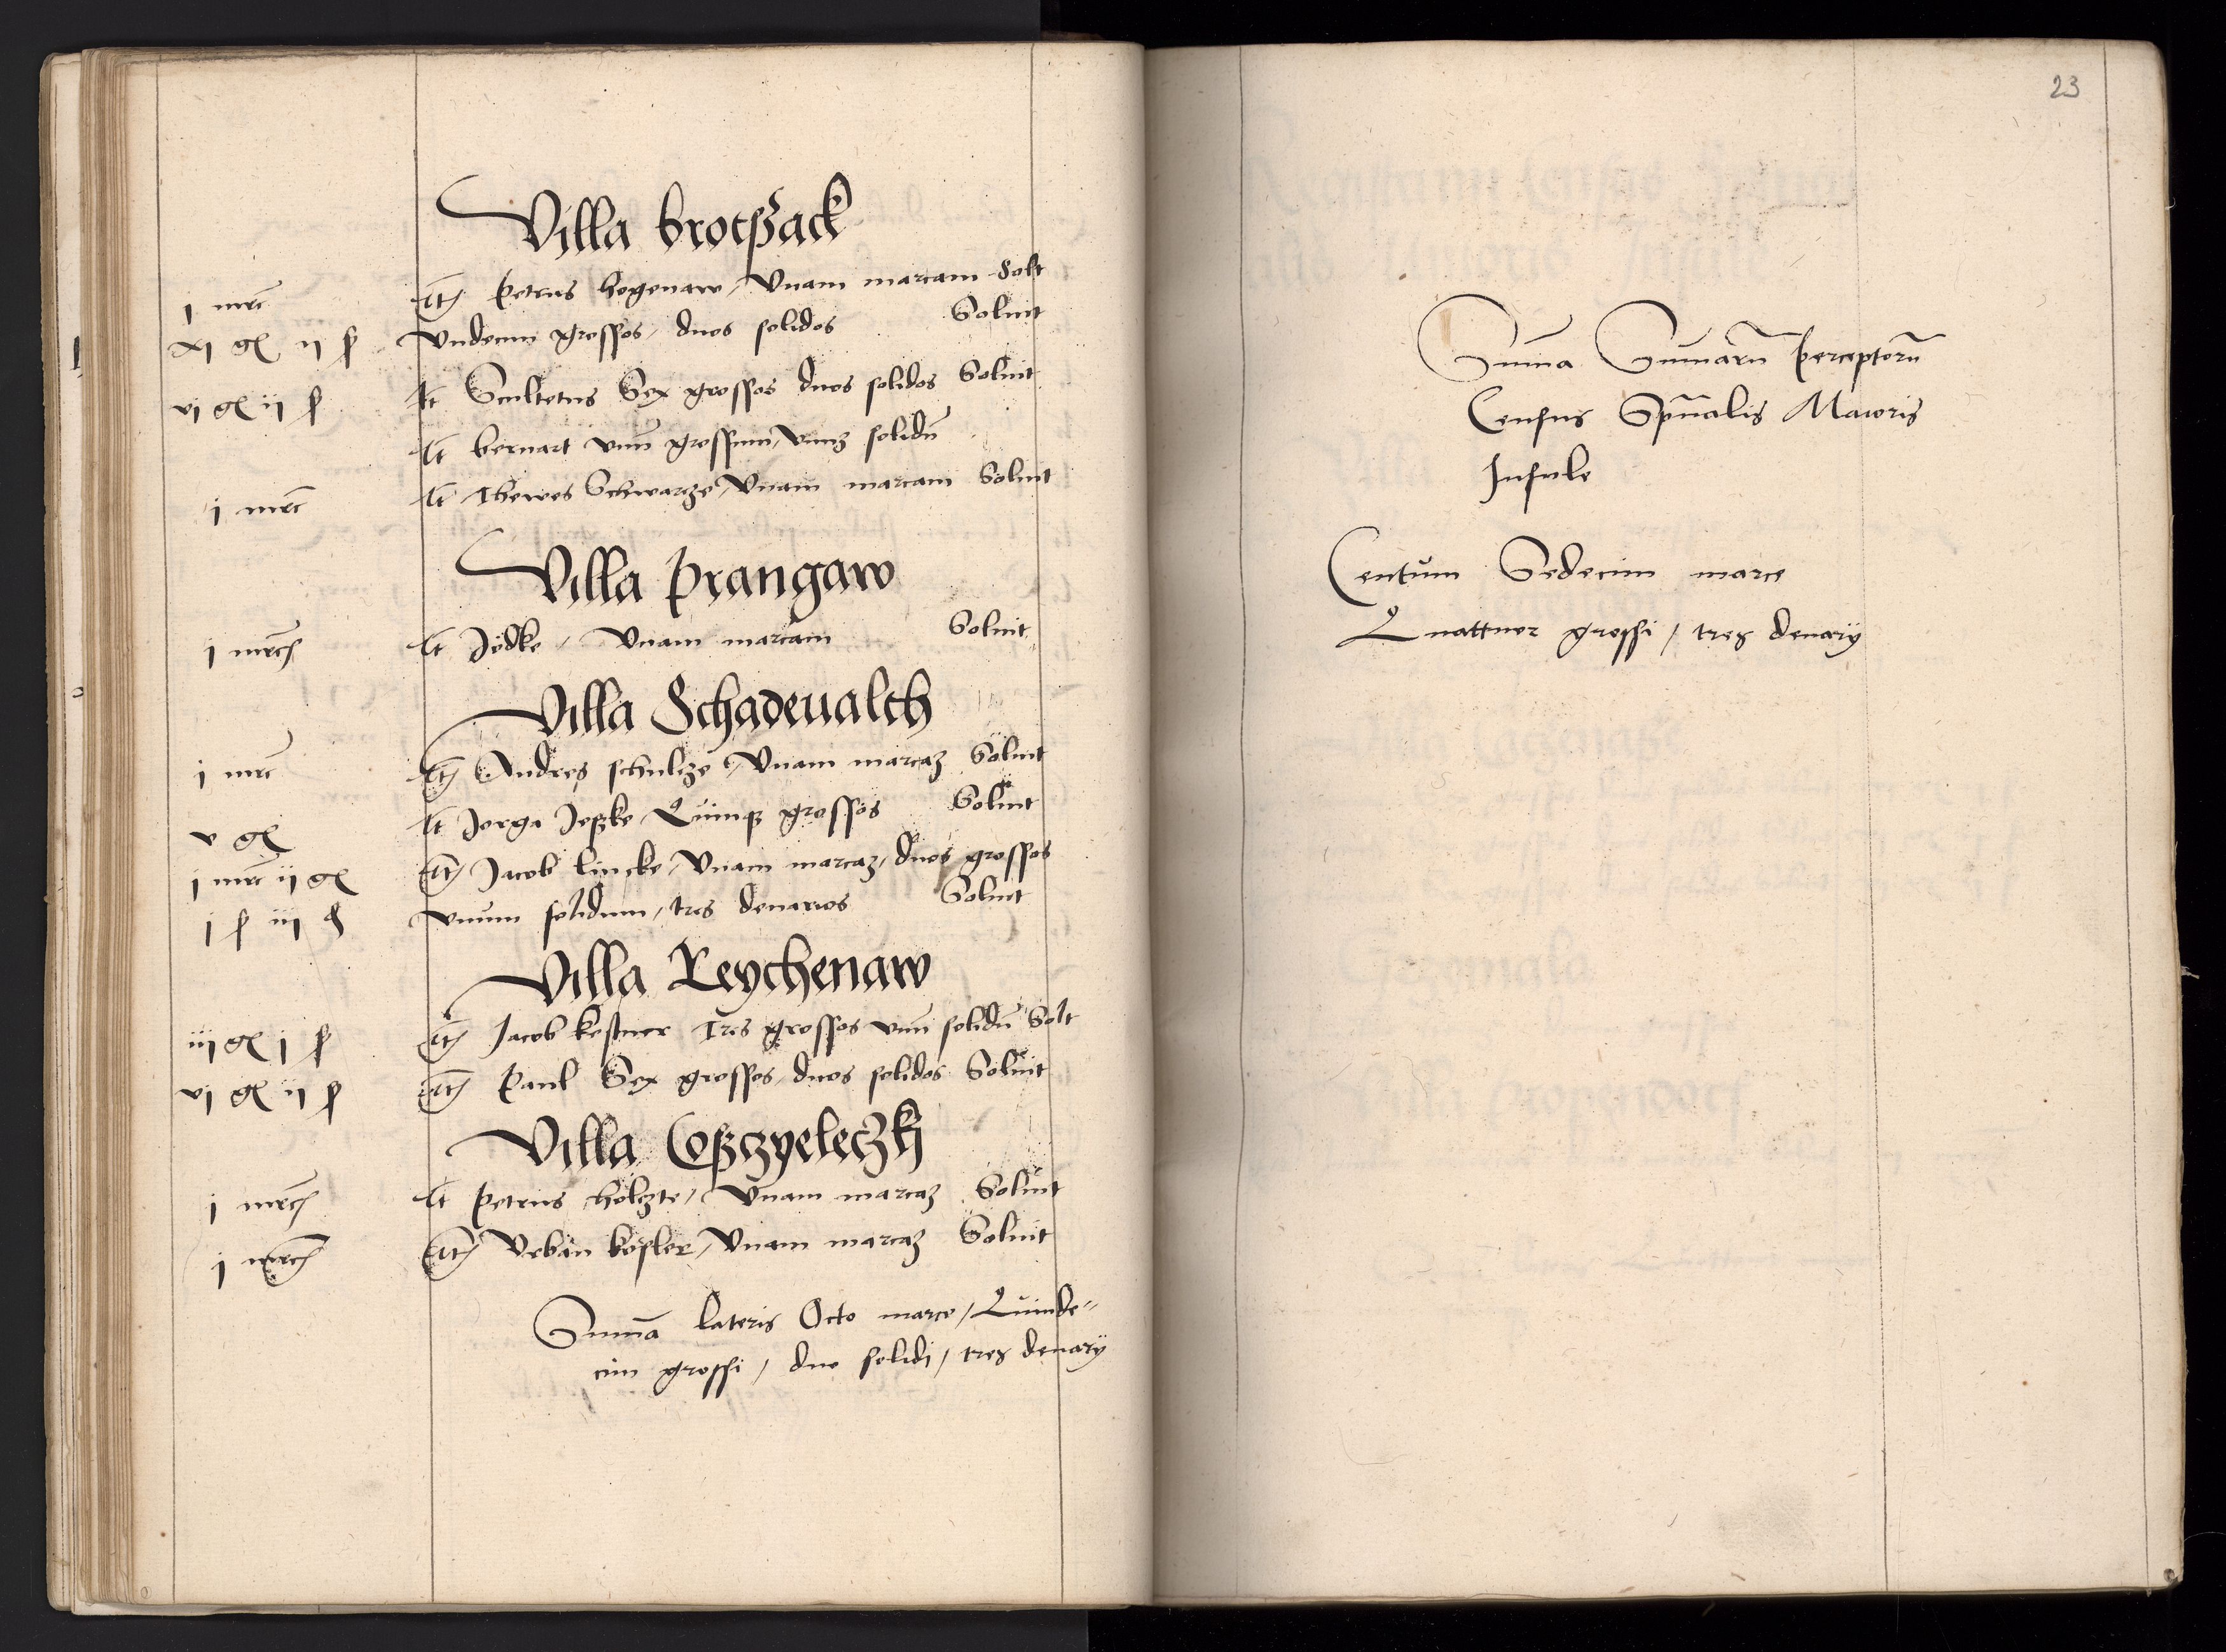 Villa brotsack
j mrc Itm Petrus hogenaw / Vnam marcam Solt
xj gl ij ß Vndecim grossos / duos solidos Soluit
vj gl ij ß It Scultetus Sex grossos duos solidos Soluit
It bernart vnu grossum / vnuz solidu
j mrc It Thewes Schwarcze / Vnam marcam Soluit
Villa prangaw
j mrc It Jedke / Vnam marcam Soluit
Villa Schadeualth
j mrc Itm Andres schulcze / Vnam marcaz Soluit
v gl It Jorga Jeßke Quinqz grossos Soluit
j mrc ij gl Itm Jacob lincke / Vnam marcaz / duos grossos
j ß iij d Vnum solidum / tres denarios Soluit
Villa Reychenaw
iij gl j ß Itm Jacob kestner Tres grossos vnu solidu Solt
vj gl ij ß Itm Paul Sex grossos / duos solidos Soluit
Villa Coßczyeleczkj
j mrc It Petrus holczte / Vnam marcaz Soluit
j mrc Itm Vrban kesler / Vnam marcaz Soluit
Suma lateris Octo marce / Quinde-
cim grossi / duo solidi / tres denarij
23
Suma Sumaru perceptoru
Census Spualis Maioris
Insule
Centum Sedecim marce
Quattuor grossi / tres denarij